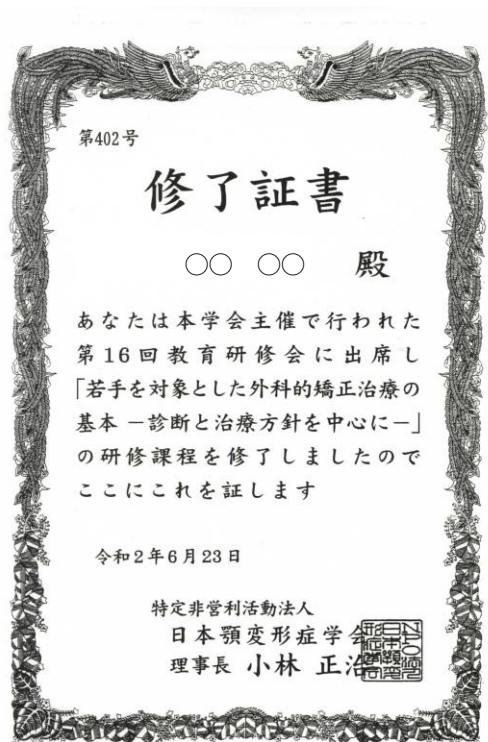 第402号
修了証書
○○ ○○ 殿
あなたは本学会主催で行われた
第16回教育研修会に出席し
「若手を対象とした外科的矯正治療の
基本 －診断と治療方針を中心に－」
の研修課程を修了しましたので
ここにこれを証します
令和2年6月23日
特定非営利活動法人
日本顎変形症学会
理事長 小林 正治